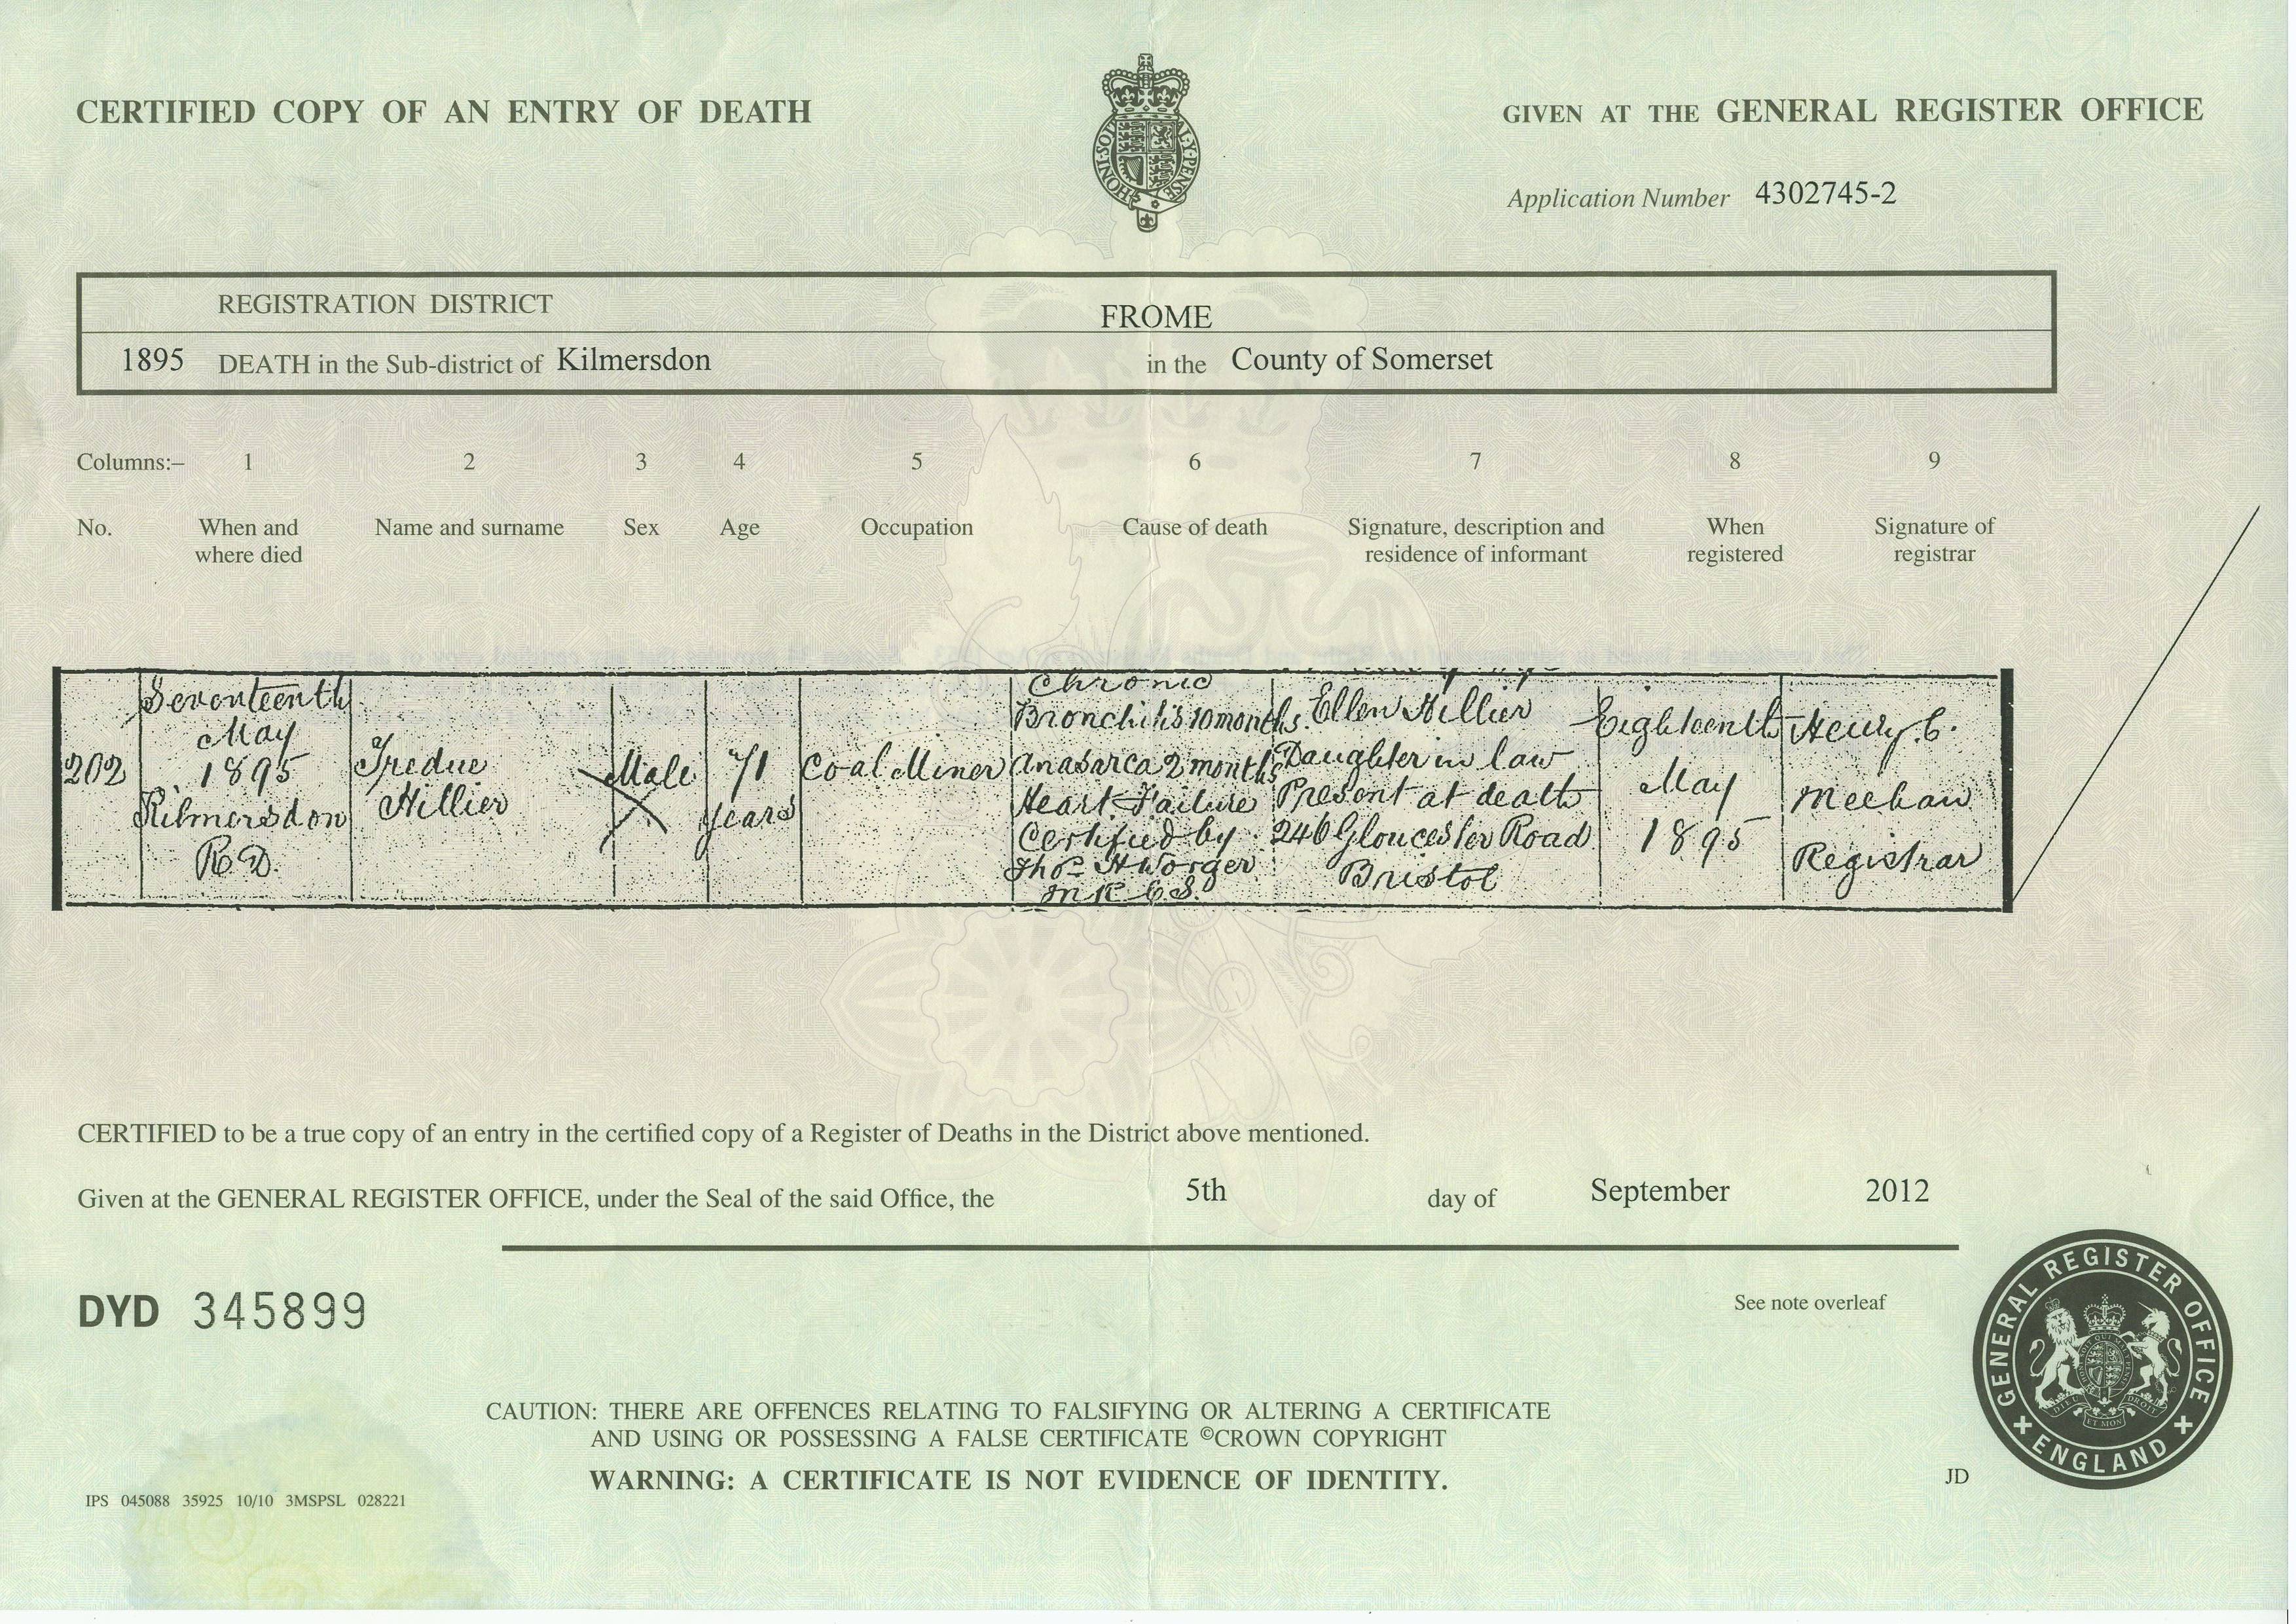 CERTIFIED COPY OF AN ENTRY OF DEATH
GIVEN AT THE GENERAL REGISTER OFFICE
HONI·SOIT
AL·Y·PENSE
Application Number 4302745-2
REGISTRATION DISTRICT FROME
1895 DEATH in the Sub-district of Kilmersdon in the County of Somerset
Columns:– 1 2 3 4 5 6 7 8 9
No. When and where died Name and surname Sex Age Occupation Cause of death Signature, description and residence of informant When registered Signature of registrar
202
Seventeenth
May
1895
Kilmersdon
R.D.
Hillier
Male
71
years
Coal Miner
Chronic
Bronchitis 10 months.
Anasarca 2 months
Heart Failure
Certified by
Thos H Worger
M R C S.
Ellen Hillier
Daughter in law
Present at death
246 Gloucester Road
Bristol
Eighteenth
May
1895
Henry C.
Meehan
Registrar
CERTIFIED to be a true copy of an entry in the certified copy of a Register of Deaths in the District above mentioned.
Given at the GENERAL REGISTER OFFICE, under the Seal of the said Office, the 5th day of September 2012
DYD 345899
See note overleaf
GENERAL REGISTER OFFICE
ENGLAND
CAUTION: THERE ARE OFFENCES RELATING TO FALSIFYING OR ALTERING A CERTIFICATE
AND USING OR POSSESSING A FALSE CERTIFICATE ©CROWN COPYRIGHT
WARNING: A CERTIFICATE IS NOT EVIDENCE OF IDENTITY.
JD
IPS 045088 35925 10/10 3MSPSL 028221